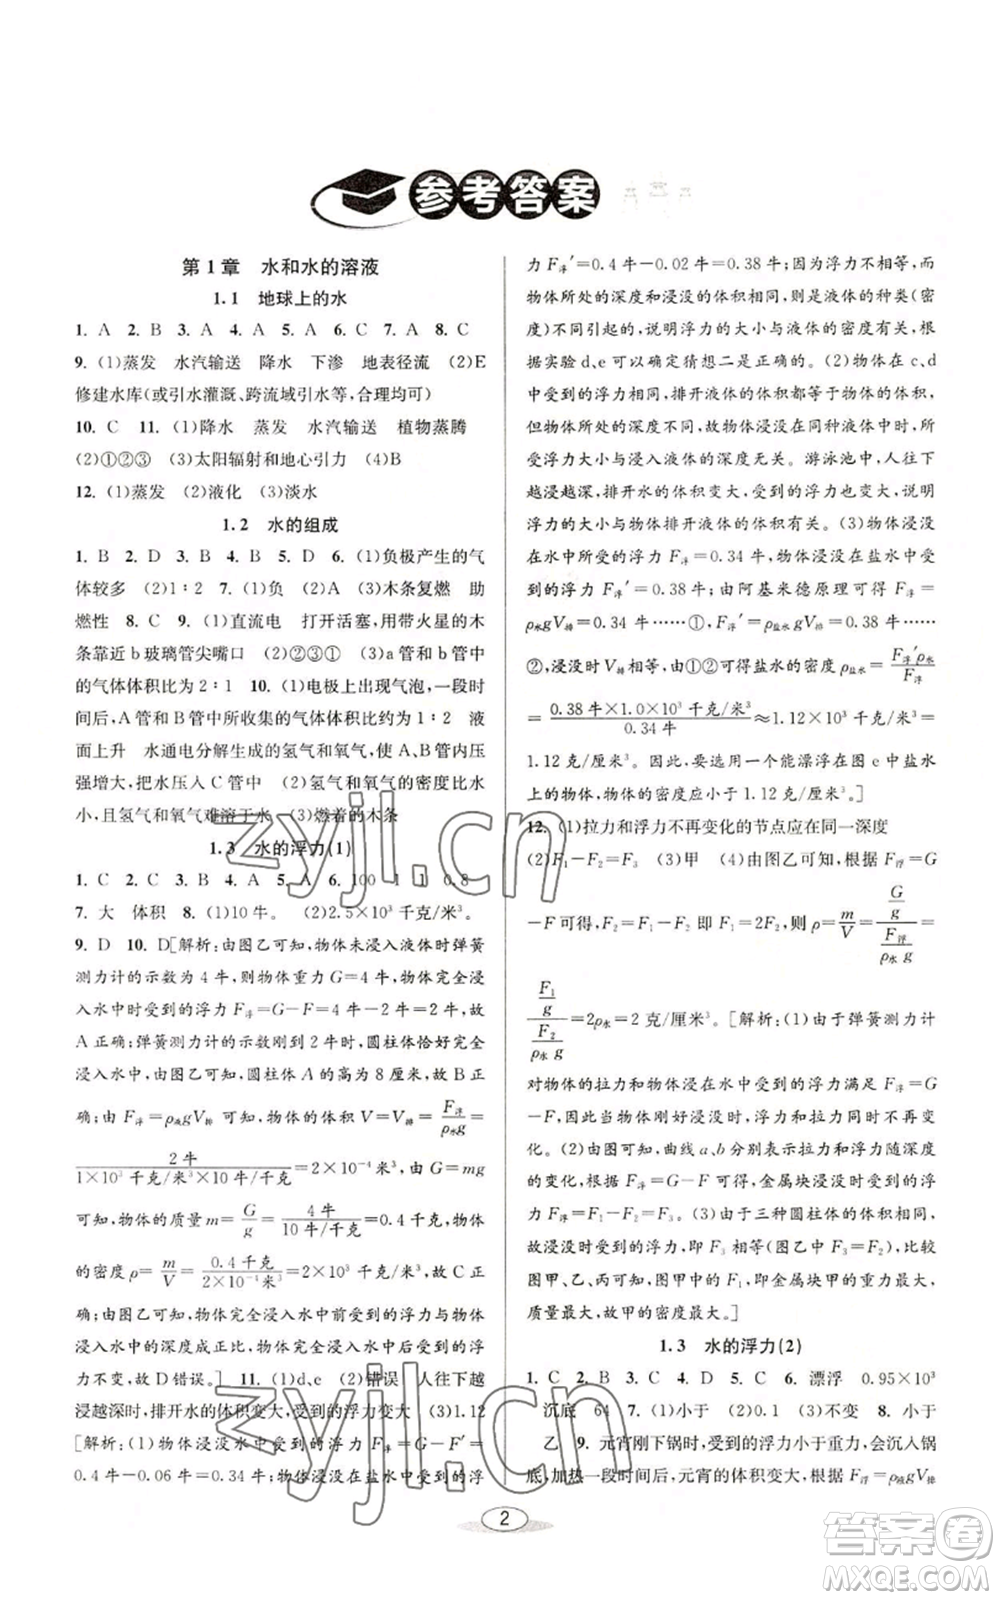 参考答案
第1章 水和水的溶液
1.1 地球上的水
1. A 2. B 3. A 4. B 5. A 6. C 7. A 8. C
9. (1)蒸发 水汽输送 降水 下渗 地表径流 (2)E
修建水库(或引水灌溉、跨流域引水等,合理均可)
10. C 11. (1)降水 蒸发 水汽输送 植物蒸腾
(2)①②③ (3)太阳辐射和地心引力 (4)B
12. (1)蒸发 (2)液化 (3)淡水
1.2 水的组成
1. B 2. D 3. B 4. B 5. D 6. (1)负极产生的气
体较多 (2)1∶2 7. (1)B (2)A (3)木条复燃 助
燃性 8. C 9. (1)直流电 打开活塞,用带火星的木
条靠近b玻璃管尖嘴口 (2)②③① (3)a管和b管中
的气体体积比为2∶1 10. (1)电极上出现气泡,一段时
间后,A管和B管中所收集的气体体积比约为1∶2 液
面上升 水通电分解生成的氢气和氧气,使A、B管内压
强增大,把水压入C管中 (2)氢气和氧气的密度比水
小,且氢气和氧气难溶于水 (3)燃着的木条
1.3 水的浮力(1)
1. C 2. C 3. B 4. A 5. A 6. 100 1 1 0.8
7. 大 体积 8. (1)10牛。 (2)2.5×10³千克/米³。
9. D 10. D[解析:由图乙可知,物体未浸入液体时弹簧
测力计的示数为4牛,则物体重力G=4牛,物体完全浸
入水中时受到的浮力F浮=G-F=4牛-2牛=2牛,故
A正确;弹簧测力计的示数刚到2牛时,圆柱体恰好完全
浸入水中,由图乙可知,圆柱体A的高为8厘米,故B正
确;由F浮=ρ液gV排可知,物体的体积V=V排=F浮/ρ水g=
2牛/(1×10³千克/米³×10牛/千克)=2×10⁻⁴米³,由G=mg
可知,物体的质量m=G/g=4牛/(10牛/千克)=0.4千克,物体
的密度ρ=m/V=0.4千克/(2×10⁻⁴米³)=2×10³千克/米³,故C正
确;由图乙可知,物体完全浸入水中前受到的浮力与浸入
水中的深度成正比,物体完全浸入水中后受到的浮力不
变,故D错误。] 11. (1)d、e (2)错误 人往下走
浸越深时,排开水的体积变大,受到的浮力变大 (3)1.12
[解析:(1)物体浸没水中受到的浮力F浮=G-F′=
0.4牛-0.06牛=0.34牛;物体浸没在盐水中受到的浮
力F浮′=0.4牛-0.02牛=0.38牛;因为浮力不相等,而
物体所处的深度和浸没的体积相同,是液体的种类(密
度)不同引起的,说明浮力的大小与液体的密度有关,根
据实验d、e可以确定猜想二是正确的。(2)物体在c、d
中受到的浮力相同,排开液体的体积都等于物体的体积,
但物体所处的深度不同,故物体浸没在同种液体中,所
受浮力大小与浸入液体的深度无关。游泳池中,人往下
越浸越深,排开水的体积变大,受到的浮力变大,说明
浮力的大小与物体排开液体的体积有关。(3)物体浸没
在水中所受的浮力F浮=0.34牛,物体浸没在盐水中受
到的浮力F浮′=0.38牛;由阿基米德原理可得F浮=
ρ水gV排=0.34牛……①,F浮′=ρ盐水gV排=0.38牛……
②,浸没时V排相等,由①②可得盐水的密度ρ盐水=F浮′ρ水/F浮
=0.38牛×1.0×10³千克/米³/0.34牛≈1.12×10³千克/米³=
1.12克/厘米³。因此,要使一能漂浮在图e中盐水
上的物体,物体的密度应小于1.12克/厘米³。]
12. (1)拉力和浮力不再变化的节点应在同一深度
(2)F₁-F₂=F₃ (3)甲 (4)由图乙可知,根据F浮=G
-F可得,F₂=F₁-F₂ 即F₁=2F₂,则ρ=m/V=(G/g)/(F浮/ρ水g)=
(F₁/g)/(F₂/ρ水g)=2ρ水=2克/厘米³。[解析:(1)由于弹簧测力计
对物体的拉力和物体浸在水中受到的浮力满足F浮=G
-F,因此当物体刚好浸没时,浮力和拉力同时不再变
化。(2)由图可知,曲线a、b分别表示拉力和浮力随深度
的变化情况,根据F浮=G-F可得,金属块浸没时的浮
力F浮=F₁-F₂=F₃。(3)由于三种圆柱体的体积相同,
故浸没时受到的浮力,即F₃相等(图乙中F₃=F₂),比较
图甲、乙、丙可知,图甲中的F₁,即金属块甲的重力最大,
质量最大,故甲的密度最大。]
1.3 水的浮力(2)
1. C 2. B 3. A 4. D 5. C 6. 漂浮 0.95×10³
沉底 64 7. (1)小于 (2)0.1 (3)不变 8. 小于
乙 9. 元宵刚下锅时,受到的浮力小于重力,会沉入锅
底,加热一段时间后,元宵的体积变大,根据F浮=ρ液gV排
2
zyjl.cn
zyjl.cn
答案圈
MXQE.COM